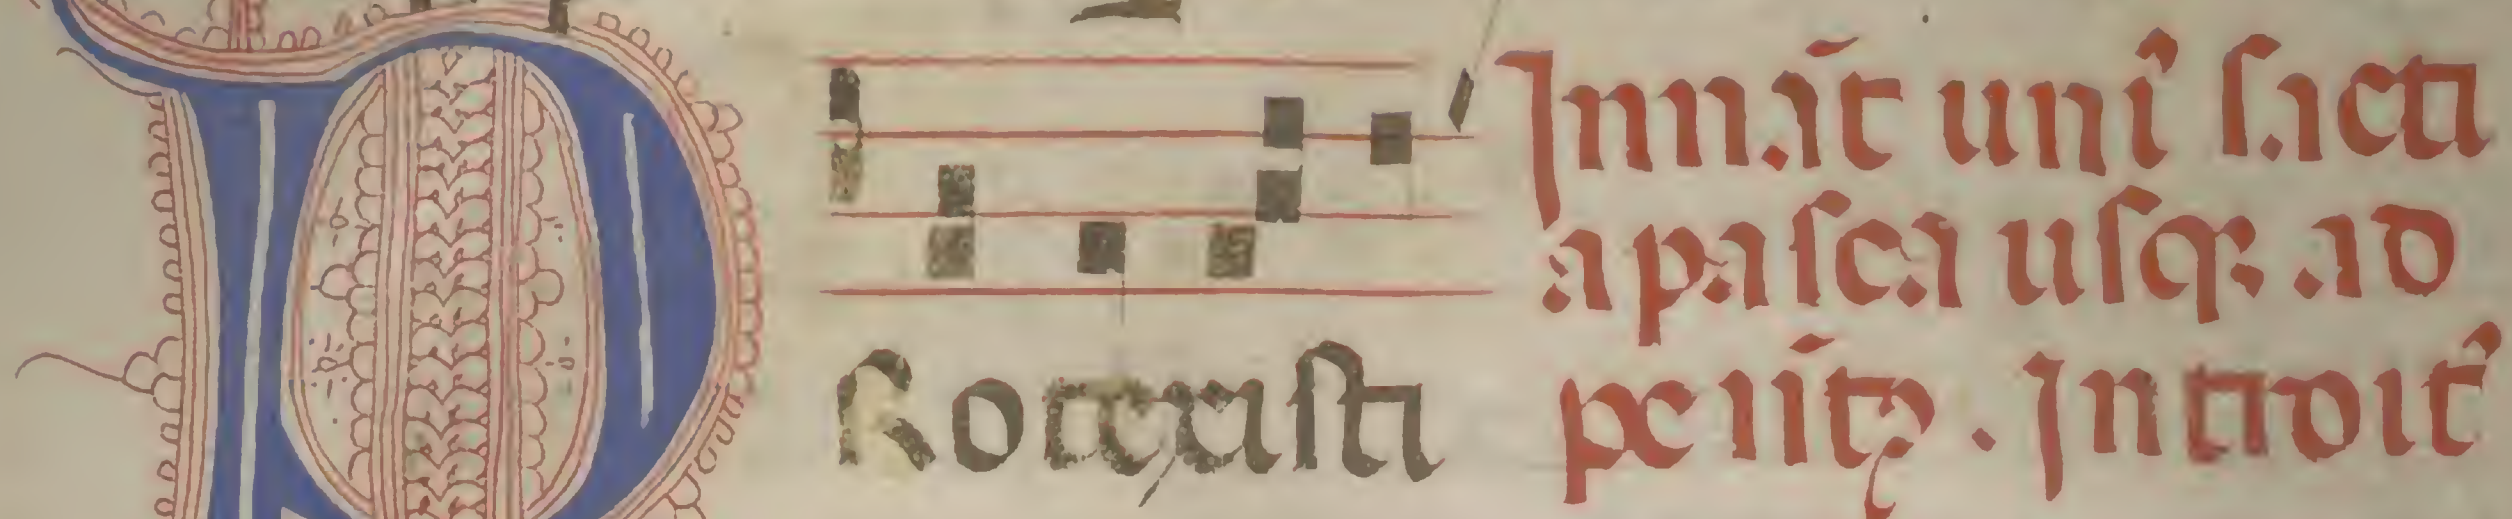 PRotexisti
In nat̄ uniꝰ s.acti
a pasca usqꝫ ad
penth̄. Introitꝰ